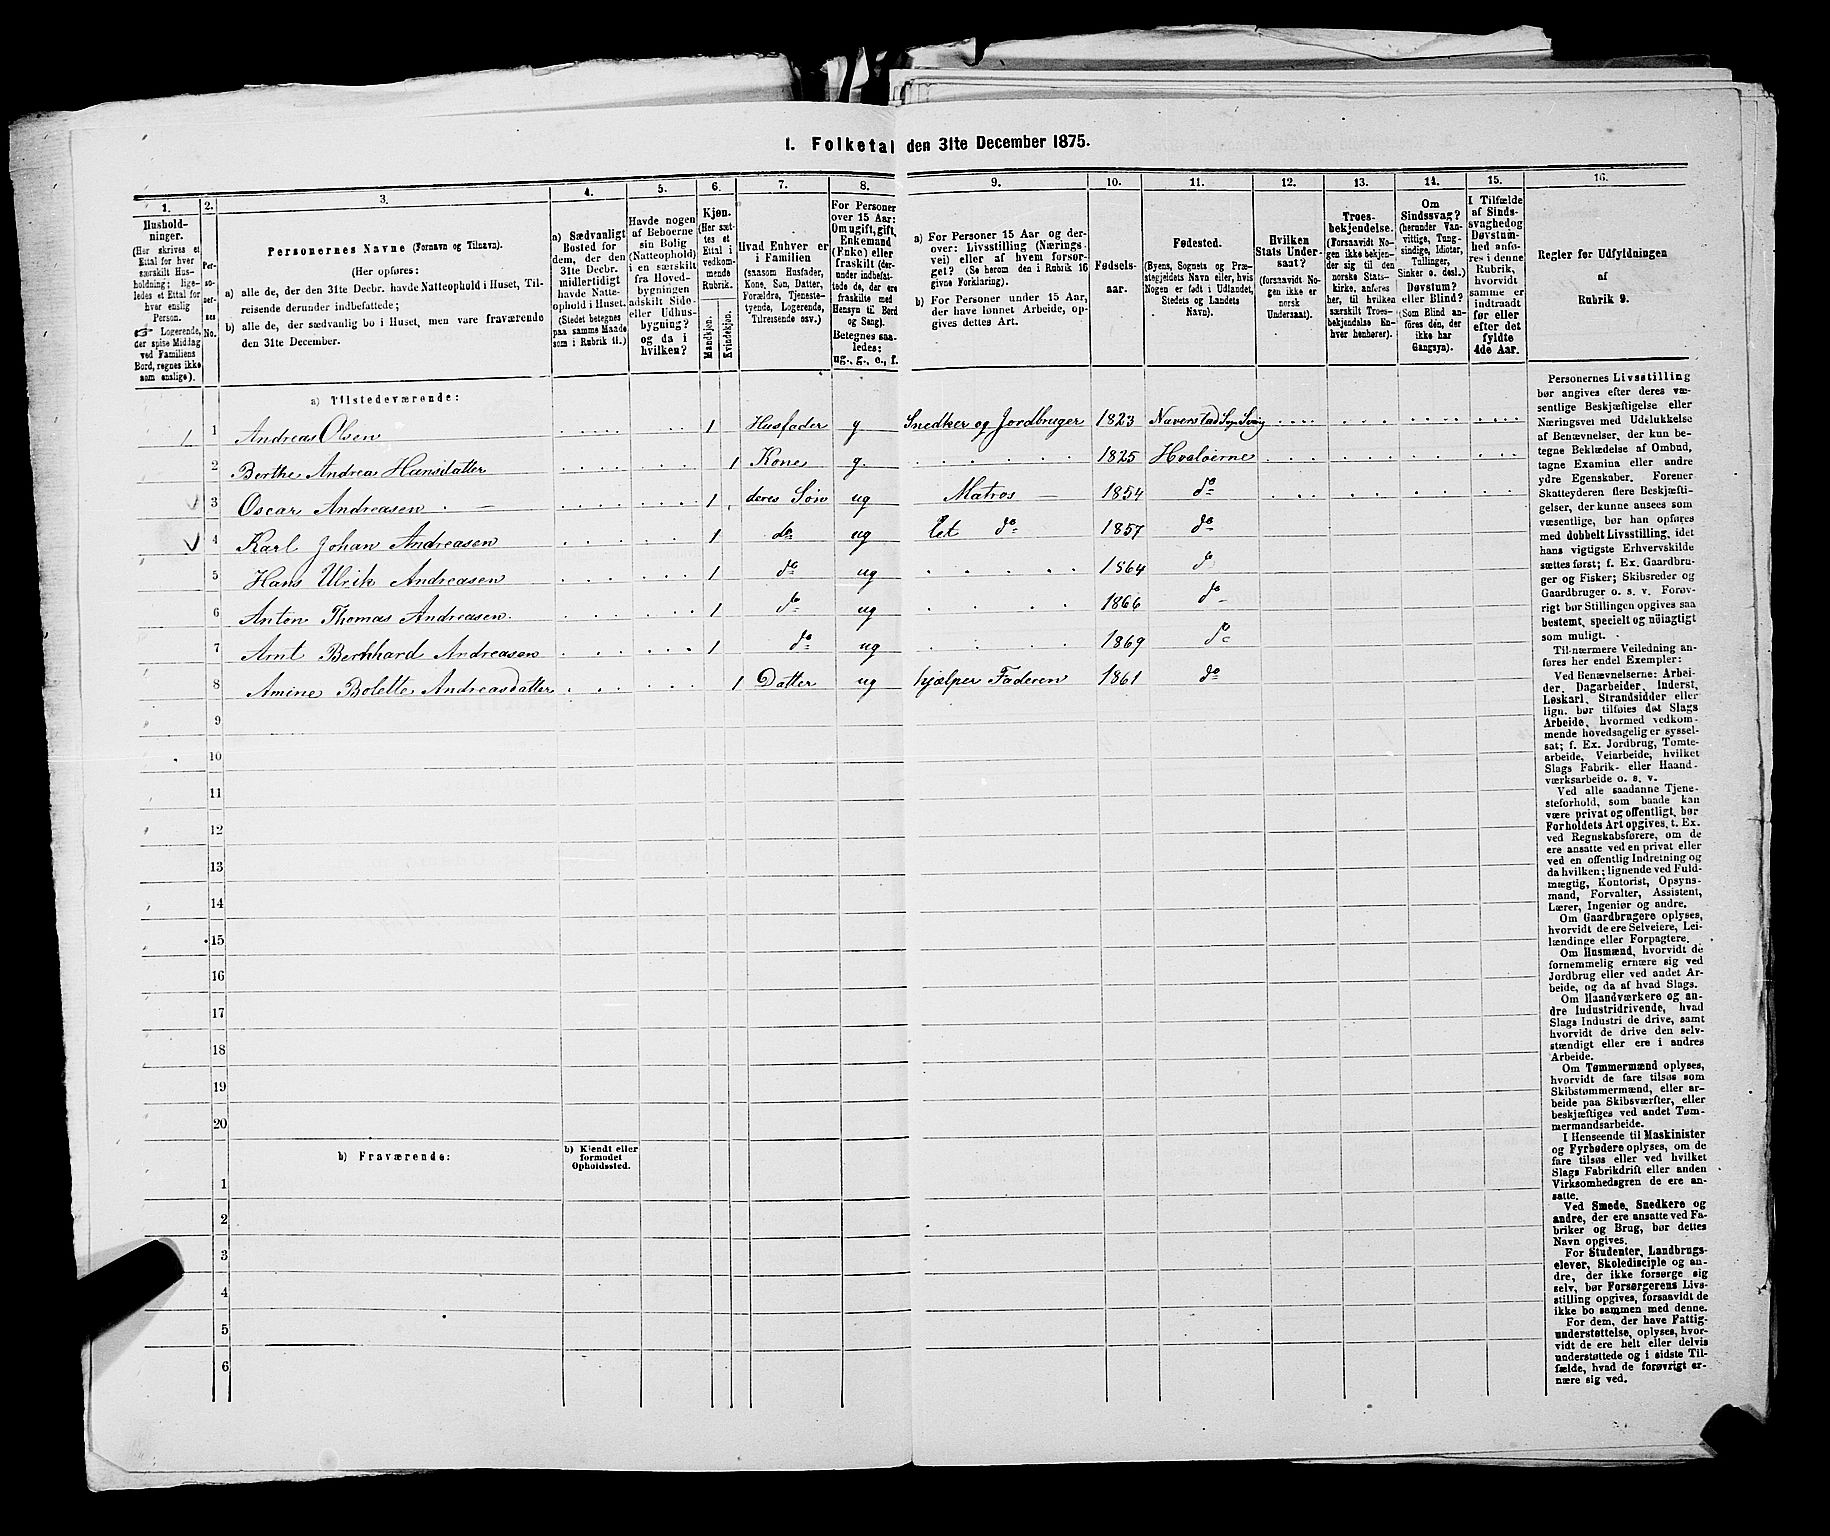 I. Folketal den 31te December 1875.
1. 2. 3. 4. 5. 6. 7. 8. 9. 10. 11. 12. 13. 14. 15. 16.
Hushold-
ninger.
(Her skrives et
Ettal for hver
særskilt Hus-
holdning; lige-
ledes et Ettal for
hver enslig
Person.
☞ Logerende,
der spise Middag
ved Familiens
Bord, regnes ikke
som enslige).
Per-
so-
ner-
nes
No.
Personernes Navne (Fornavn og Tilnavn).
(Her opføres:
a) alle de, der den 31te Decbr. havde Natteophold i Huset, Til-
reisende derunder indbefattede;
b) alle de, der sædvanlig bo i Huset, men vare fraværende
den 31te December.
a) Sædvanligt
Bosted for
dem, der den
31te Decbr.
midlertidigt
havde Natte-
ophold i Huset.
(Stedet betegnes
paa samme Maade
som i Rubrik 11.)
Havde nogen
af Beboerne
sin Bolig
(Natteophold)
i en særskilt
fra Hoved-
bygningen
adskilt Side-
eller Udhus-
bygning?
og da i
hvilken?
Kjøn.
(Her sæt-
tes et
Ettal i
vedkom-
mende
Rubrik.
Mandkjøn.
Kvindekjøn.
Hvad Enhver er
i Familien
(saasom Husfader,
Kone, Søn, Datter,
Forældre, Tjeneste-
tyende, Logerende,
Tilreisende osv.)
For Personer
over 15 Aar:
Om ugift, gift,
Enkemand
(Enke) eller
fraskilt (der-
under indbefat-
tede de, der ere
fraskilte med
Hensyn til Bord
og Seng).
Betegnes saa-
ledes:
ug., g., e., f.
a) For Personer 15 Aar og der-
over: Livsstilling (Nærings-
vei) eller af hvem forsør-
get? (Se herom den i Rubrik 16
givne Forklaring).
b) For Personer under 15 Aar,
der have lønnet Arbeide, op-
gives dettes Art.
Fødsels-
aar.
Fødested.
(Byens, Sognets og Præ-
stegjeldets Navn eller, hvis
Nogen er født i Udlandet,
Stedets og Landets
Navn).
Hvilken
Stats Under-
saat?
(forsaavidt No-
gen ikke er
norsk
Undersaat).
Troes-
bekjendelse.
(Forsaavidt No-
gen ikke bekjen-
der sig til den
norske Stats-
kirke, anføres
her, til hvilken
særskilt Troes-
bekjendelse En-
hver henhører).
Om
Sindssvag?
(herunder Van-
vittige, Tung-
sindige, Idioter,
Tullinger,
Sinker o. desl.)
Døvstum?
eller Blind?
(Som Blind an-
føres den, der
ikke har
Gangsyn).
I Tilfælde
af Sinds-
svaghedog
Døvstum-
hed anfø-
res i denne
Rubrik,
hvorvidt
samme er
indtraadt
før eller
efter det
fyldte
4de Aar.
Regler for Udfyldningen
af
Rubrik 9.
a) Tilstedeværende:
1 1 Andreas Olsen 1 Husfader g Snedker og Jordbruger 1823 Naverstad
2 Berthe Andrea Hansdatter 1 Kone g. 1825 Hvaløerne
3 Oscar Andreasen 1 deres Søn ug Matros 1854 do
4 Karl Johan Andreasen 1 do ug Let do 1857 do
5 Hans Ulrik Andreasen 1 do ug 1864 do
6 Anton Thomas Andreasen. 1 do ug 1866 do
7 Arnt Bernhard Andreasen 1 do ug 1869 do
8 Amine Bolette Andreasdatter 1 Datter ug hjælper Faderen 1861 do
9
10
11
12
13
14
15
16
17
18
19
20
b) Fraværende:
b) Kjendt eller
formodet
Opholdssted.
1
2
3
4
5
6
Personernes Livsstilling
bør angives efter deres væ-
sentlige Beskjæftigelse eller
Næringsvei med Udelukkelse
af Benævnelser, der kun be-
tegne Beklædelse af Ombud,
tagne Examina eller andre
ydre Egenskaber. Forener
Skatteyderen flere Beskjæfti-
gelser, der kunne ansees som
væsentlige, bør han opføres
med dobbelt Livsstilling, idet
hans vigtigste Erhvervskilde
sættes først; f. Ex. Gaardbru-
ger og Fisker; Skibsreder og
Gaardbruger o. s. v. Forøv-
rigt bør Stillingen opgives saa
bestemt, specielt og nøiagtigt
som muligt.
Til nærmere Veiledning an-
føres her endel Exempler:
Ved Benævnelserne: Arbei-
der, Dagarbeider, Inderst,
Løskarl, Strandsidder eller
lign. bør tilføies det Slags
Arbeide, hvormed vedkom-
mende hovedsagelig er syssel-
sat; f. Ex. Jordbrug, Tomte-
arbeide, Veiarbeide, hvilket
Slags Fabrik- eller Haand-
værksarbeide o. s. v.
Ved alle saadanne Tjene-
steforhold, som baade kan
være privat og offentligt, bør
Forholdets Art opgives, t. Ex.
ved Regnskabsførere, om de
ere ansatte ved en privat eller
ved en offentlig Indretning og
da hvilken; lignende ved Fuld-
mægtig, Kontorist, Opsyns-
mand, Forvalter, Assistent,
Lærer, Ingeniør og andre.
Om Gaardbrugere oplyses,
hvorvidt de ere Selveiere, Lei-
lændinge eller Forpagtere.
Om Husmænd, hvorvidt de
fornemmelig ernære sig ved
Jordbrug eller ved andet Ar-
beide, og da af hvad Slags.
Om Haandværkere og an-
dre Industridrivende, hvad
Slags Industri de drive, samt
hvorvidt de drive den selv-
stændigt eller ere i andres
Arbeide.
Om Tømmermænd oplyses,
hvorvidt de fare tilsøs som
Skibstømmermænd, eller ar-
beide paa Skibsværfter, eller
beskjæftiges ved andet Tøm-
mermandsarbeide.
I Henseende til Maskinister
og Fyrbødere oplyses, om de
fare tilsøs eller ved hvilket
Slags Fabrikdrift eller anden
Virksomhedsgren de ere an-
satte.
Ved Smede, Snedkere og
andre, der ere ansatte ved Fa-
briker og Brug, bør dettes
Navn opgives.
For Studenter, Landbrugs-
elever, Skoledisciple og an-
dre, der ikke forsørge sig
selv, bør Forsørgerens Livs-
stilling opgives, forsaavidt de
ikke bo sammen med denne.
For dem, der have Fattig-
understøttelse, oplyses, hvor-
vidt de ere helt eller delvis
understøttede og i sidste Til-
fælde, hvad de forøvrigt er-
nære sig ved.